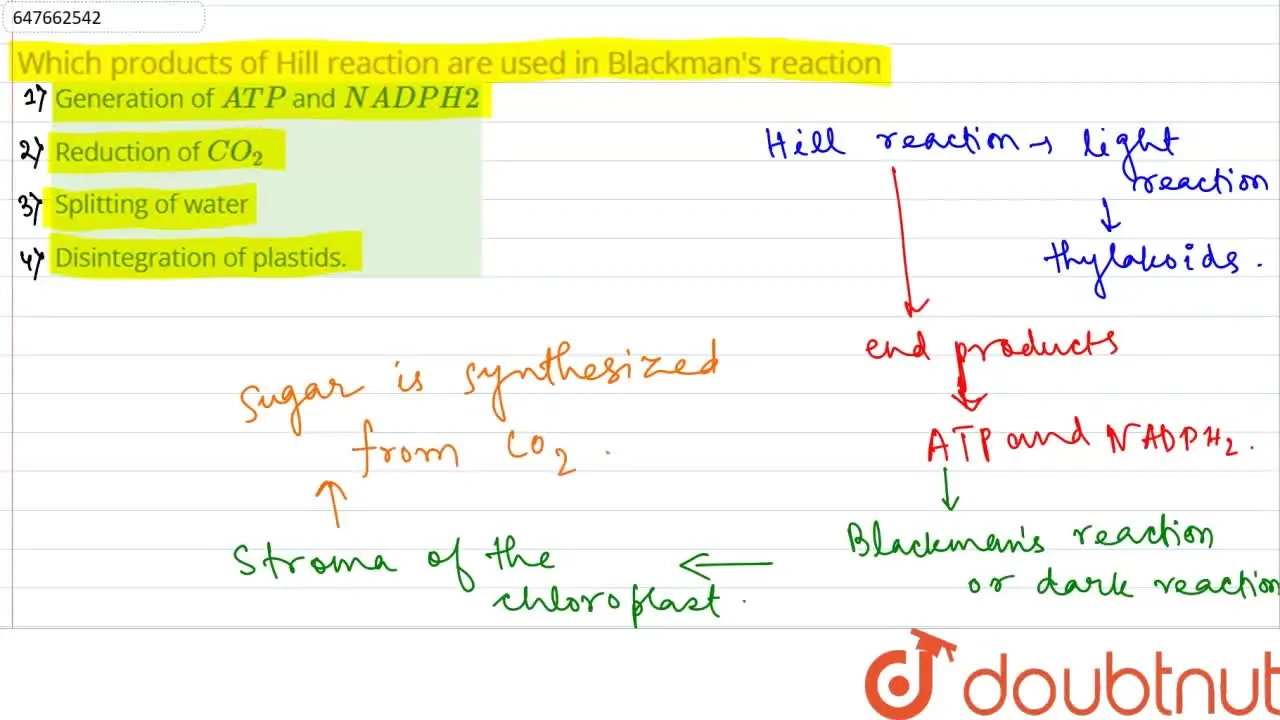 647662542
Which products of Hill reaction are used in Blackman's reaction
1) Generation of ATP and NADPH2
2) Reduction of CO₂
3) Splitting of water
4) Disintegration of plastids.
Hill reaction → light
reaction
thylakoids.
end products
ATP and NADPH₂.
Blackman's reaction
or dark reaction
Stroma of the
chloroplast.
Sugar is synthesized
from CO₂.
doubtnut